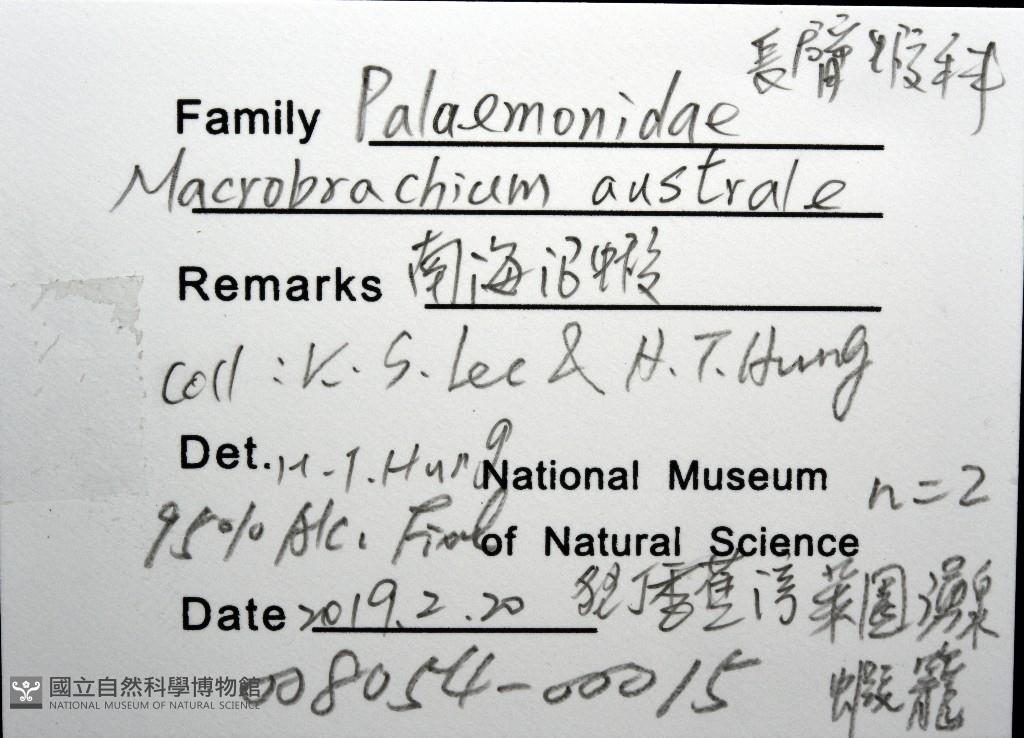 長臂蝦科
Family Palaemonidae
Macrobrachium australe
Remarks 南海沼蝦
Coll: K. S. Lee & H. T. Hung
Det. H. T. Hung
National Museum n=2
95% Alc. Fixed
of Natural Science
墾丁香蕉灣菜園湧泉
Date 2019.2.20
蝦籠
008054-00015
國立自然科學博物館
NATIONAL MUSEUM OF NATURAL SCIENCE